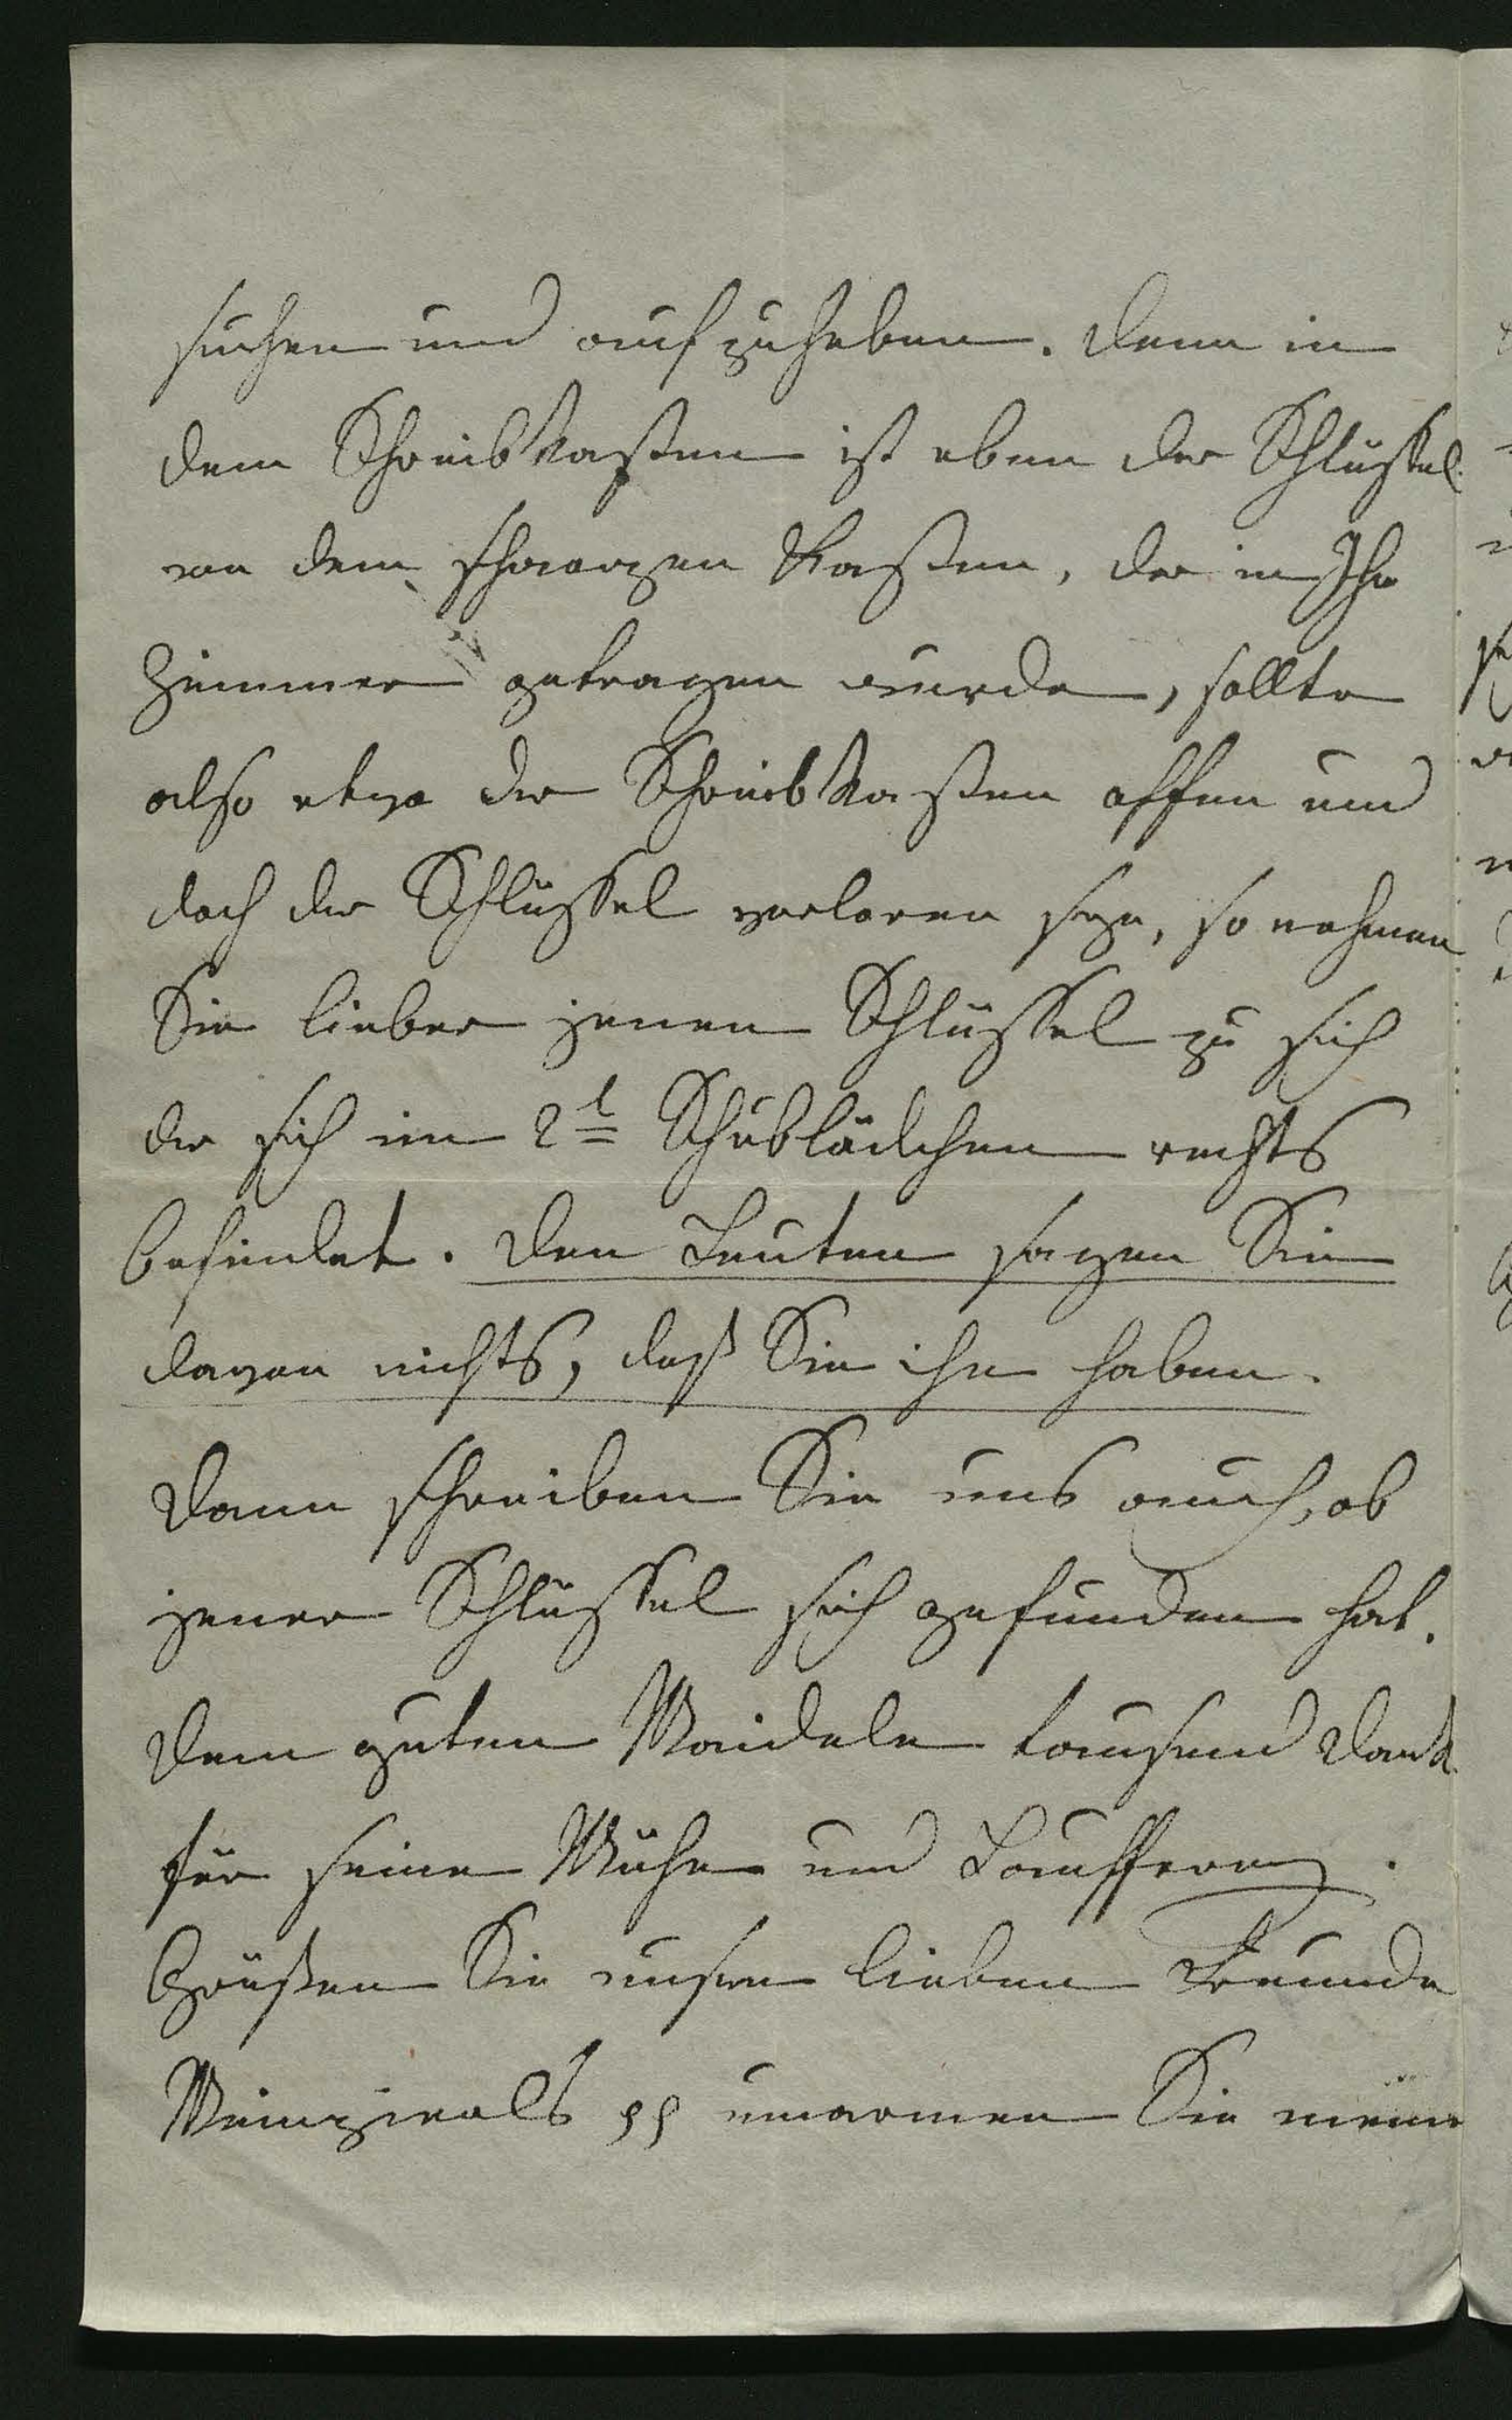 suchen und aufzuheben. Denn in
dem Schreibkasten ist eben der Schlüssel
von dem schwarzen Kasten, der in Ihr
Zimmer getragen wurde, sollte
also etwa der Schreibkasten offen und
doch der Schlüssel verloren seyn, so nehmen
Sie lieber jenen Schlüssel zu sich
der sich im 2t Schublädchen rechts
befindet. Den Leuten sagen Sie
davon nichts, daß Sie ihn haben.
Dann schreiben Sie uns auch, ob
jener Schlüssel sich gefunden hat.
Dem guten Maidele tausend Dank
für seine Mühe und Laufferey.
Grüßen Sie unsre lieben Freunde
umarmen Sie meine